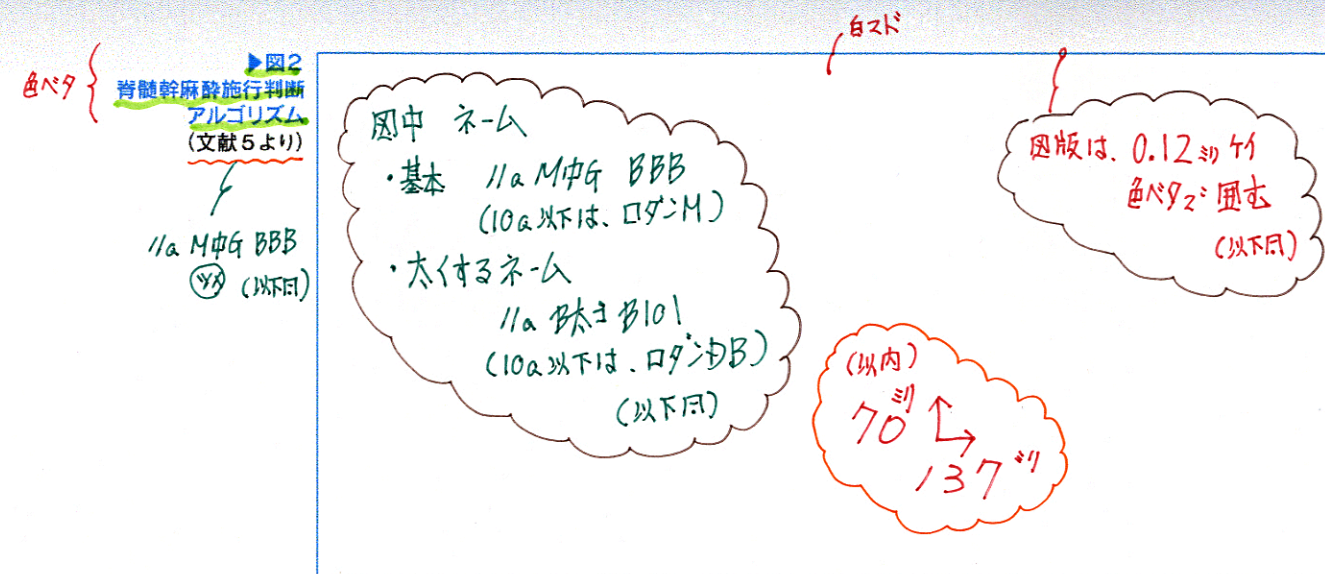 白マド
色ベタ
▶図2
脊髄幹麻酔施行判断
アルゴリズム
(文献5より)
11a M中G BBB
ツメ (以下同)
図中 ネーム
・基本 11a M中G BBB
(10a以下は、ロダンM)
・太くするネーム
11a B太ゴ B101
(10a以下は、ロダンDB)
(以下同)
図版は、0.12ミリケイ
色ベタで囲む
(以下同)
(以内)
70ミリ
137ミリ